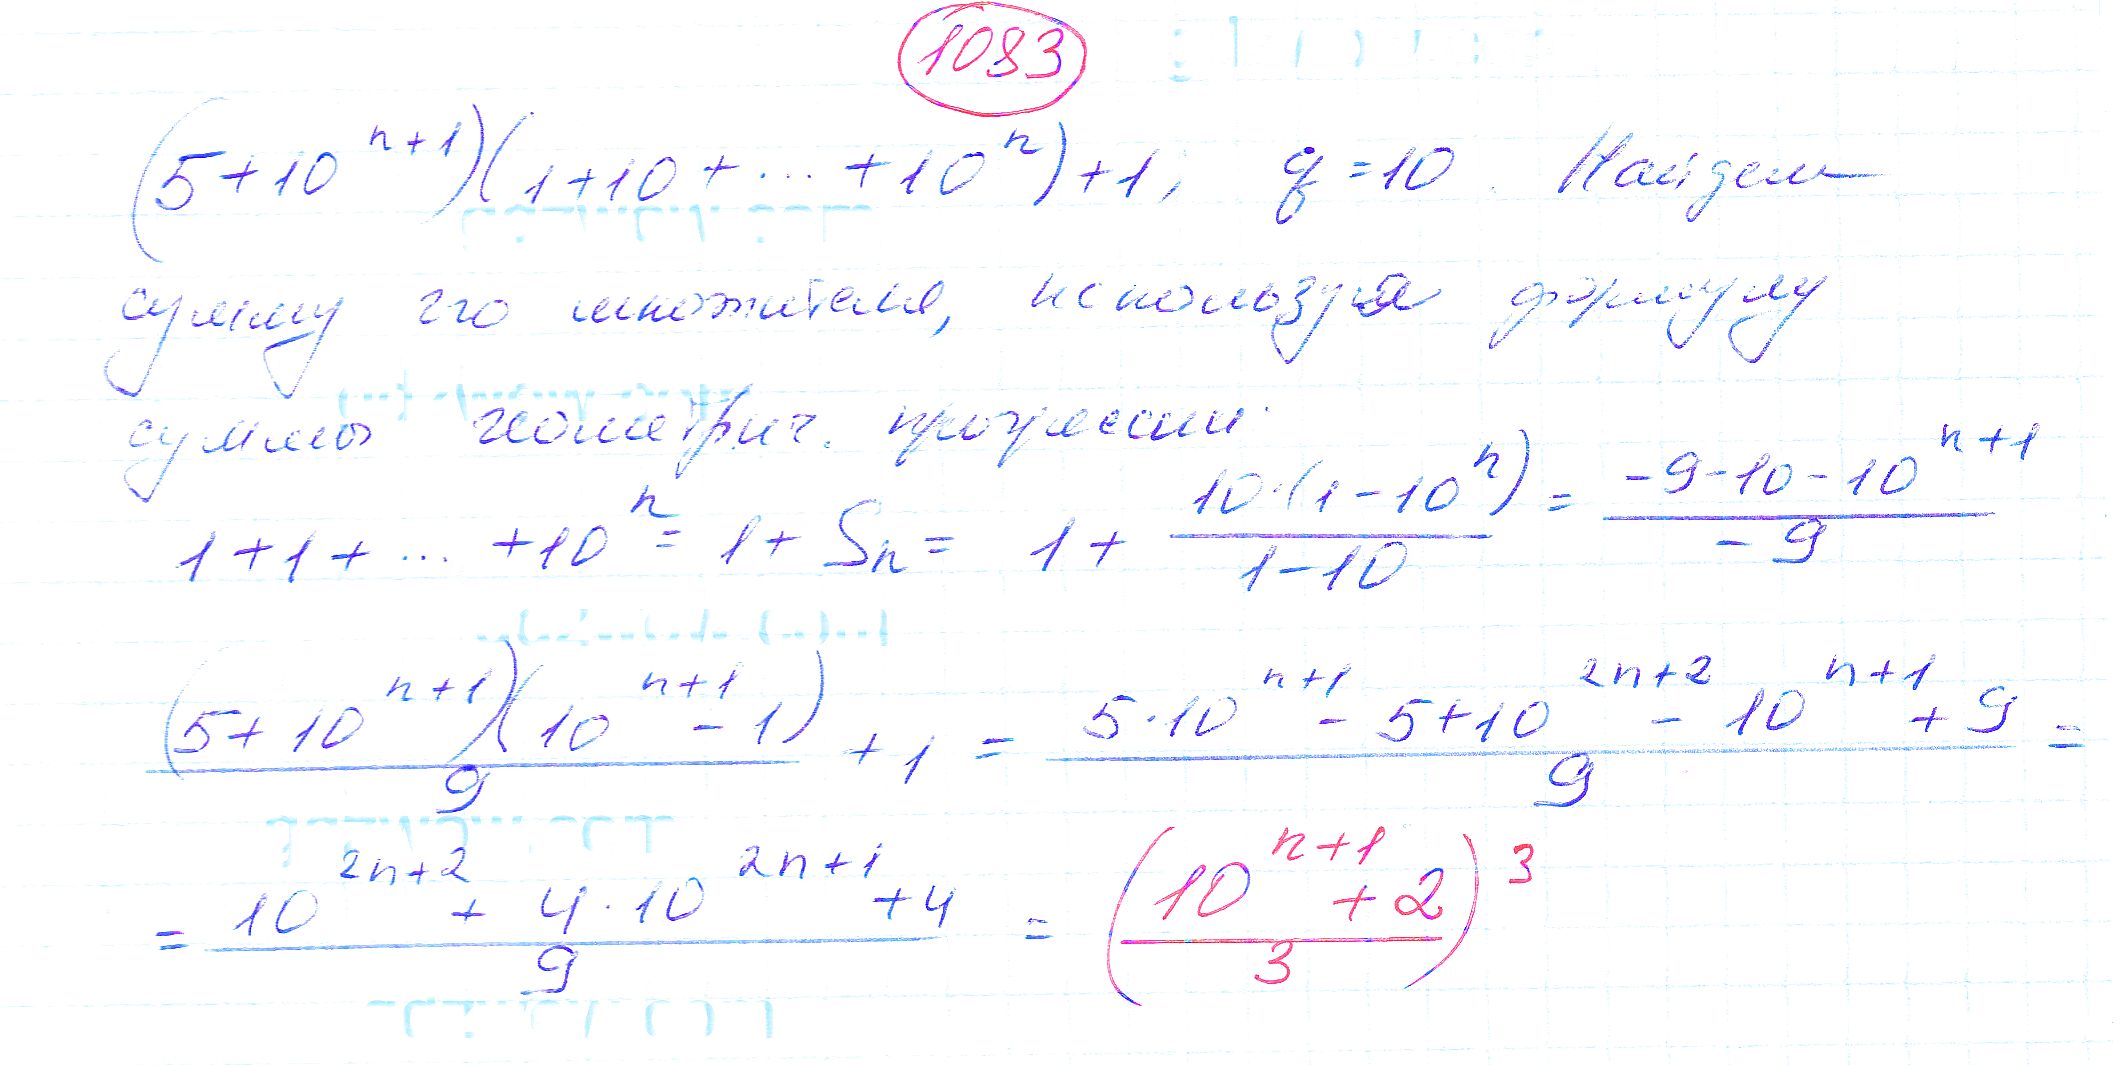 1083
(5+10^{n+1})(1+10+...+10^n)+1, q=10. Найдем
сумму 2го множителя, используя формулу
суммы геометрич. прогрессии.
1+1+...+10^n=1+S_n=1+\frac{10·(1-10^n)}{1-10}=\frac{-9-10-10^{n+1}}{-9}
\frac{(5+10^{n+1})(10^{n+1}-1)}{9}+1=\frac{5·10^{n+1}-5+10^{2n+2}-10^{n+1}+9}{9}=
=\frac{10^{2n+2}+4·10^{2n+1}+4}{9}=(\frac{10^{n+1}+2}{3})^3